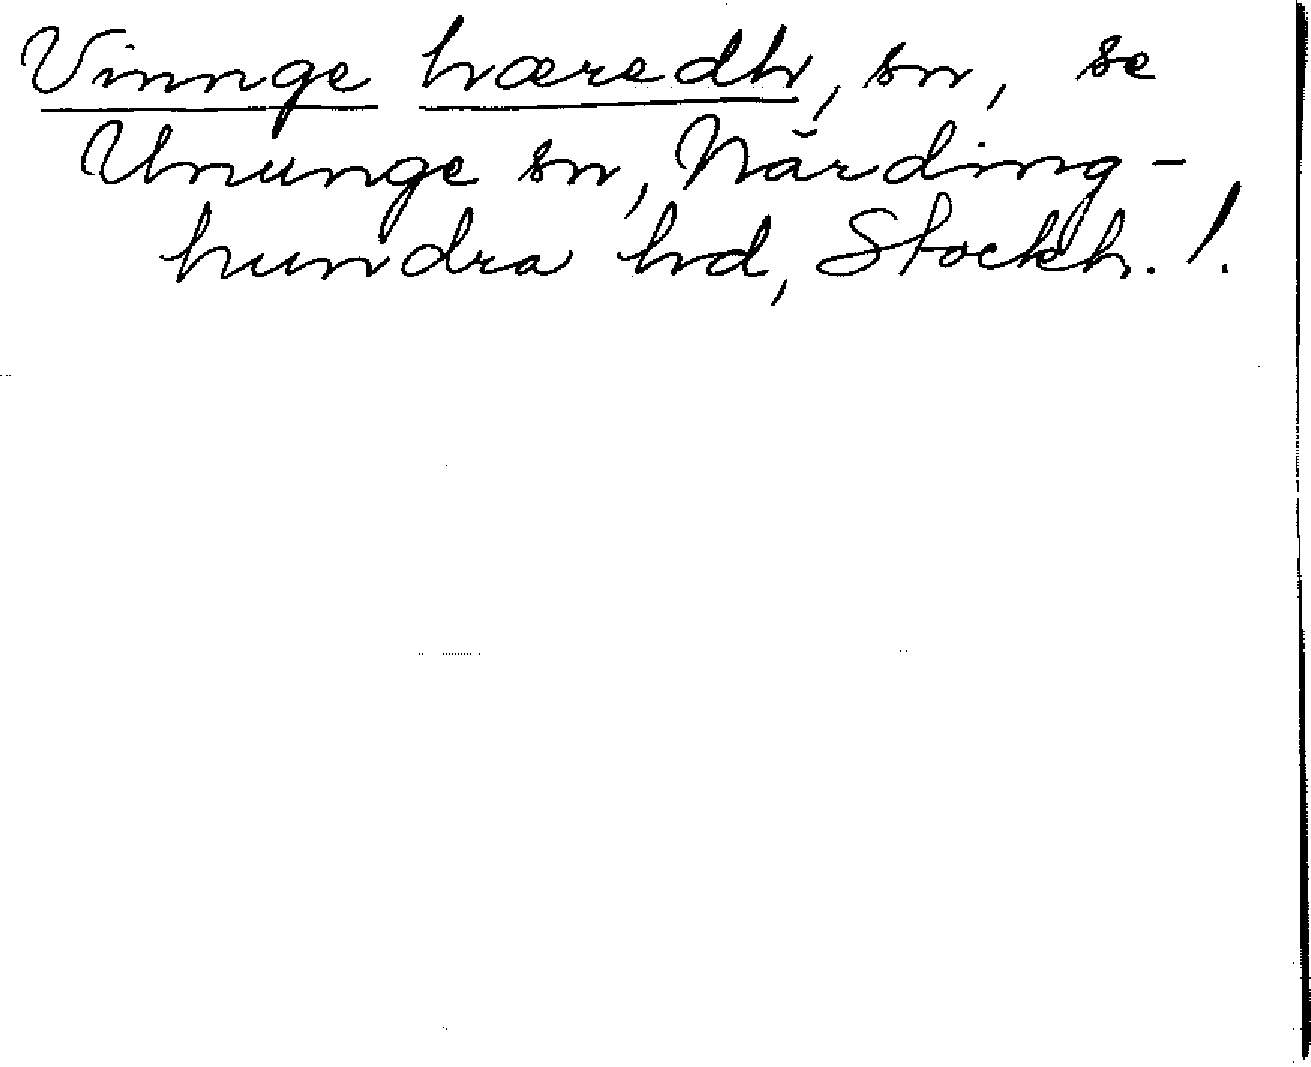 Vinnge hæredh, sn, se
Ununge sn, Närding-
hundra hd, Stockh. l.